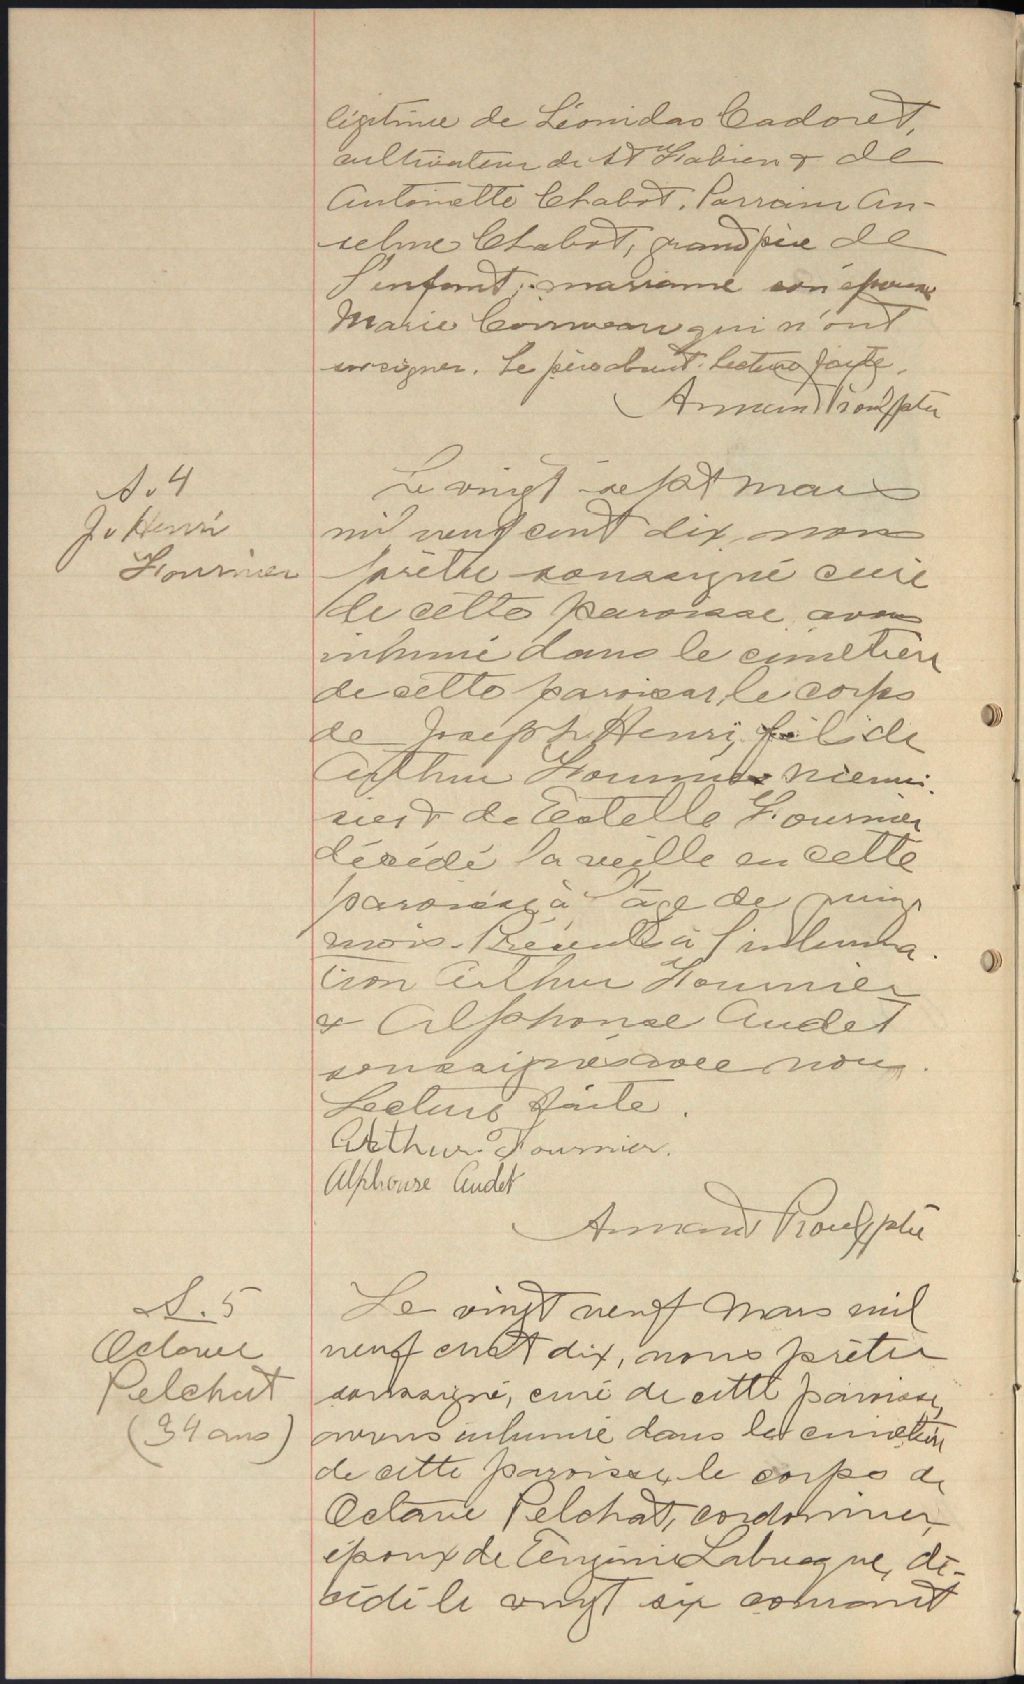 légitime de Léonidas Cadoret,
cultivateur de St Fabien & de
Antoinette Chabot. Parrain An-
selme Chabot, grand père de
l'enfant; marraine son épouse
Marie Comeau qui n'ont
su signer. Le père absent. Lecture faite.
Armand Proulx ptre
S. 4
J. Henri
Fournier
Le vingt sept mars
mil neuf cent dix, nous
prêtre soussigné curé
de cette paroisse avons
inhumé dans le cimetière
de cette paroisse, le corps
de Joseph Henri, fils de
Arthur Fournier menui-
sier & de Estelle Fournier
décédé la veille en cette
paroisse à l'âge de
mois. Présents à l'inhuma-
tion Arthur Fournier
& Alphonse Audet
soussignés avec nous.
Lecture faite.
Arthur Fournier.
Alphonse Audet
Armand Proulx ptre
S. 5
Octave
Pelchat
(34 ans)
Le vingt neuf mars mil
neuf cent dix, nous prêtre
soussigné, curé de cette paroisse,
avons inhumé dans le cimetière
de cette paroisse, le corps de
Octave Pelchat, cordonnier,
époux de Eugénie Labrecque, dé-
cédé le vingt six courant